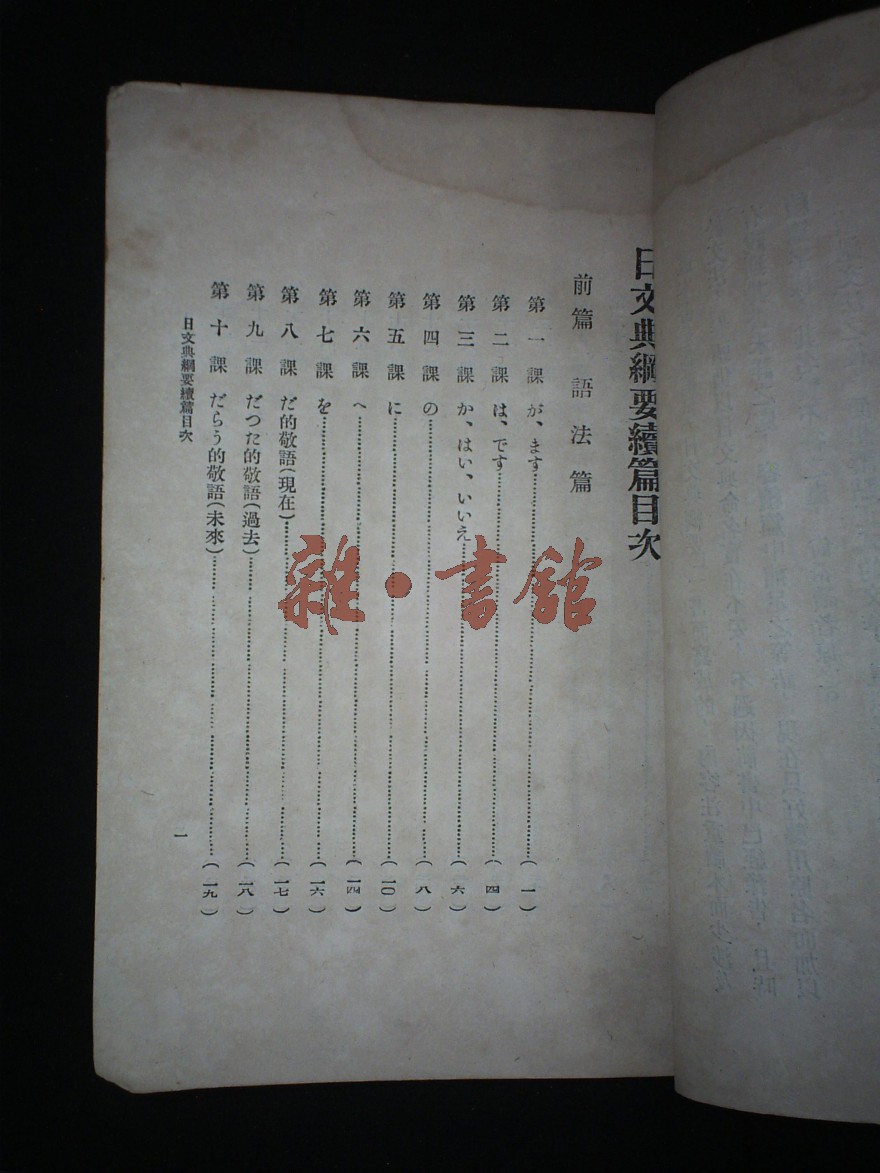 日文典綱要續篇目次
前篇 語法篇
第一課 が、ます……(一)
第二課 は、です……(四)
第三課 か、はい、いいえ……(六)
第四課 の……(八)
第五課 に……(一〇)
第六課 へ……(一四)
第七課 を……(一六)
第八課 だ的敬語(現在)……(一七)
第九課 だつた的敬語(過去)……(一八)
第十課 だらう的敬語(未來)……(一九)
日文典綱要續篇目次
一
雜·書館